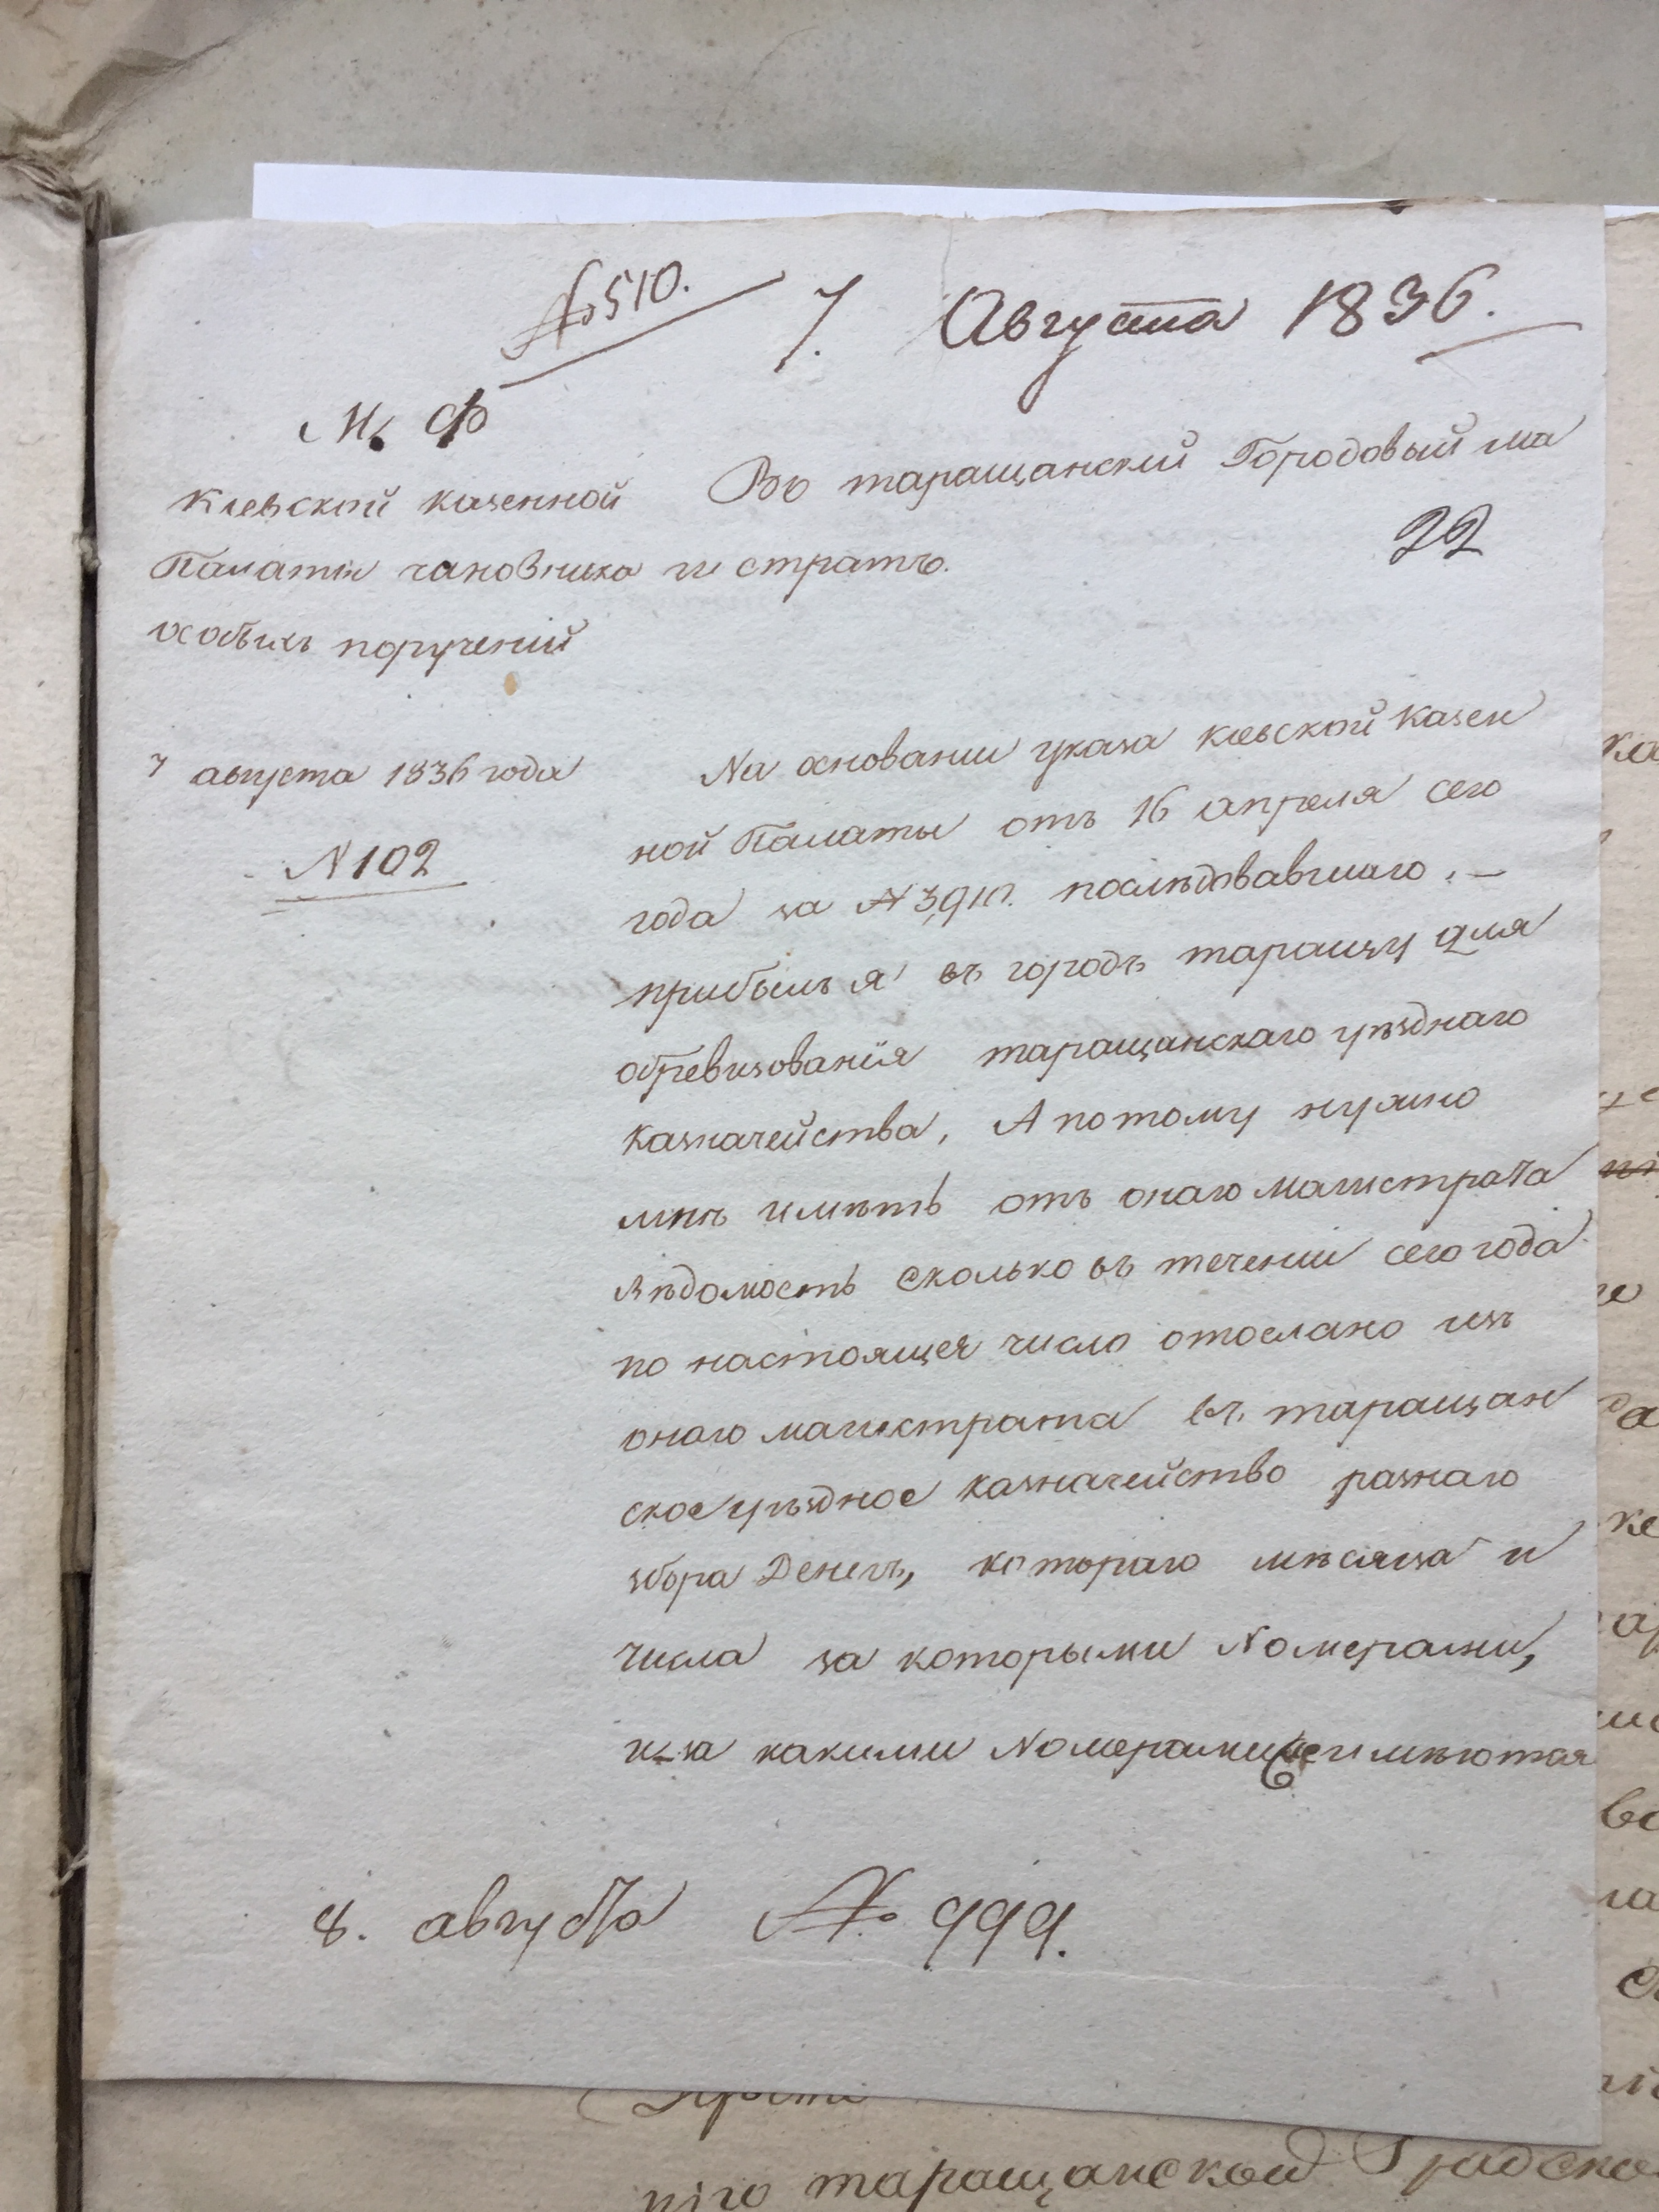 № 510.
7. Августа 1836.
М. Ф
Киевской казенной
Палаты чановника
особыхъ порученій
7 августа 1836 года
№ 102
Въ таращанский Городовый ма
гистратъ.
22
На основании указа киевской казен
ной Палаты отъ 16 апреля сего
года за № 3,910. последовавшаго. —
прибылъ я въ городъ таращу для
обревизованія таращанскаго уѣзднаго
казначейства, А потому нужно
мнѣ имѣть отъ онаго магистрата
вѣдомость сколько въ течении сего года
по настоящея число отослано изъ
онаго магистрата въ таращан
ское уѣздное казначейство разнаго
збора Денегъ, котораго мѣсяца и
числа за которыми Номерами,
и за какими Номерами имѣются
8. августа № 999.
таращанской